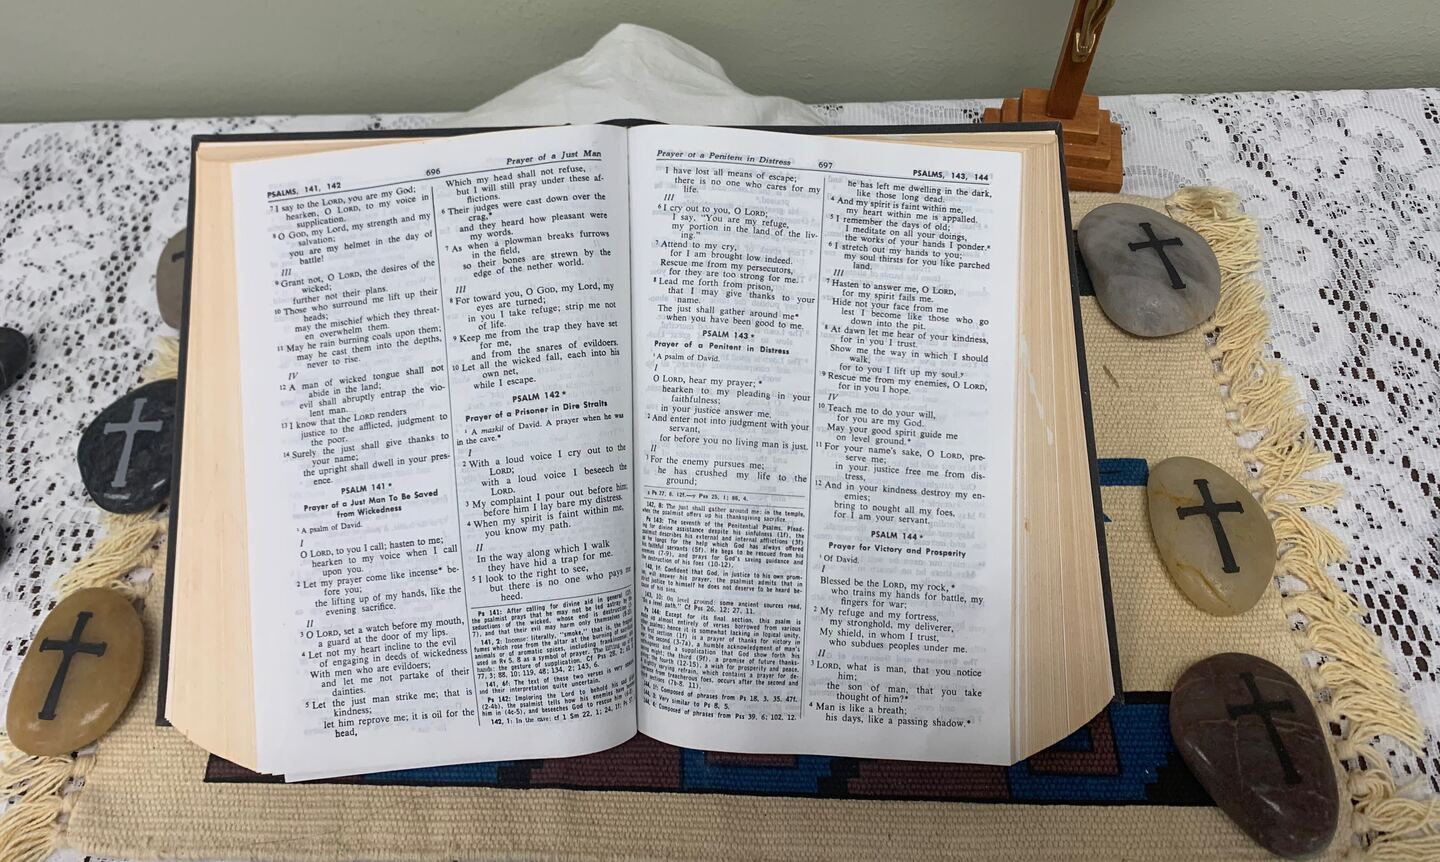 PSALMS, 141, 142
696
Prayer of a Just Man
7 I say to the LORD, you are my God;
hearken, O LORD, to my voice in
supplication.
8 O GOD, my Lord, my strength and my
salvation;
you are my helmet in the day of
battle!
III
9 Grant not, O LORD, the desires of the
wicked;
further not their plans.
10 Those who surround me lift up their
heads;
may the mischief which they threat-
en overwhelm them.
11 May he rain burning coals upon them;
may he cast them into the depths,
never to rise.
IV
12 A man of wicked tongue shall not
abide in the land;
evil shall abruptly entrap the vio-
lent man.
13 I know that the LORD renders
justice to the afflicted, judgment to
the poor.
14 Surely the just shall give thanks to
your name;
the upright shall dwell in your pres-
ence.
PSALM 141 *
Prayer of a Just Man To Be Saved
from Wickedness
1 A psalm of David.
I
O LORD, to you I call; hasten to me;
hearken to my voice when I call
upon you.
2 Let my prayer come like incense* be-
fore you;
the lifting up of my hands, like the
evening sacrifice.
II
3 O LORD, set a watch before my mouth,
a guard at the door of my lips.
4 Let not my heart incline to the evil
of engaging in deeds of wickedness
With men who are evildoers;
and let me not partake of their
dainties.
5 Let the just man strike me; that is
kindness;
let him reprove me; it is oil for the
head,
Which my head shall not refuse,
but I will still pray under these af-
flictions.
6 Their judges were cast down over the
crag,*
and they heard how pleasant were
my words.
7 As when a plowman breaks furrows
in the field,
so their bones are strewn by the
edge of the nether world.
III
8 For toward you, O GOD, my Lord, my
eyes are turned;
in you I take refuge; strip me not
of life.
9 Keep me from the trap they have set
for me,
and from the snares of evildoers.
10 Let all the wicked fall, each into his
own net,
while I escape.
PSALM 142 *
Prayer of a Prisoner in Dire Straits
1 A maskil of David. A prayer when he was
in the cave.*
I
2 With a loud voice I cry out to the
LORD;
with a loud voice I beseech the
LORD.
3 My complaint I pour out before him;
before him I lay bare my distress.
4 When my spirit is faint within me,
you know my path.
II
In the way along which I walk
they have hid a trap for me.
5 I look to the right to see,
but there is no one who pays me
heed.
Ps 141: After calling for divine aid in general
the psalmist prays that he may not be led astray by the
seductions of the wicked, whose end is destruction
7), and that their evil may harm only themselves
141, 2: Incense: literally, "smoke," that is, the
fumes which rose from the altar at the burning of
animals or of aromatic spices,
used in Rv 5, 8 as a symbol of prayer. The lifting
hands: the gesture of supplication. Cf Pss 28, 2;
77, 3; 88, 10; 119, 48; 134, 2; 143, 6.
141, 6f: The text of these two verses is very
and their interpretation quite uncertain.
Ps 142: Imploring the Lord to behold his
(2-4b), the psalmist tells how his enemies have
him in (4c-5), and beseeches God to rescue him
142, 1: In the cave: cf 1 Sm 22, 1; 24, 1f; Ps 57,
Prayer of a Penitent in Distress
697
PSALMS, 143, 144
I have lost all means of escape;
there is no one who cares for my
life.
III
6 I cry out to you, O LORD;
I say, "You are my refuge,
my portion in the land of the liv-
ing."
7 Attend to my cry,
for I am brought low indeed.
Rescue me from my persecutors,
for they are too strong for me.
8 Lead me forth from prison,
that I may give thanks to your
name.
The just shall gather around me*
when you have been good to me.
PSALM 143 *
Prayer of a Penitent in Distress
1 A psalm of David.
I
O LORD, hear my prayer;*
hearken to my pleading in your
faithfulness;
in your justice answer me.
2 And enter not into judgment with your
servant,
for before you no living man is just.
II
3 For the enemy pursues me;
he has crushed my life to the
ground;
142, 8: The just shall gather around me: in the temple,
when the psalmist offers up his thanksgiving sacrifice.
Ps 143: The seventh of the Penitential Psalms. Plead-
for divine assistance despite his sinfulness (1f), the
psalmist describes his external and internal afflictions (3f)
he longs for the help which God has always offered
faithful servants (5f). He begs to be rescued from his
enemies (7-9), and prays for God's saving guidance and
the destruction of his foes (10-12).
143, 1f: Confident that God, in justice to his own prom-
will answer his prayer, the psalmist admits that in
strict justice to himself he does not deserve to be heard
because of his sins.
143, 10: On level ground: some ancient sources read,
"On a level path." Cf Pss 26, 12; 27, 11.
Ps 144: Except for its final section, this psalm is
almost entirely of verses borrowed from various
psalms; hence it is somewhat lacking in logical unity.
first section (1f) is a prayer of thanks for victory in
the second (3-7a), a humble acknowledgment of man's
and a supplication that God show forth his
the third (9f), a promise of future thanks-
the fourth (12-15), a wish for prosperity and peace.
slightly varying refrain, which contains a prayer for de-
from treacherous foes, occurs after the second and
sections (7b-8, 11).
Composed of phrases from Pss 18, 3. 35. 47f.
3: Very similar to Ps 8, 5.
144, 4: Composed of phrases from Pss 39, 6; 102, 12.
he has left me dwelling in the dark,
like those long dead.
4 And my spirit is faint within me,
my heart within me is appalled.
5 I remember the days of old;
I meditate on all your doings,
the works of your hands I ponder.*
6 I stretch out my hands to you;
my soul thirsts for you like parched
land.
III
7 Hasten to answer me, O LORD,
for my spirit fails me.
Hide not your face from me
lest I become like those who go
down into the pit.
8 At dawn let me hear of your kindness,
for in you I trust.
Show me the way in which I should
walk,
for to you I lift up my soul.
9 Rescue me from my enemies, O LORD,
for in you I hope.
IV
10 Teach me to do your will,
for you are my God.
May your good spirit guide me
on level ground.*
11 For your name's sake, O LORD, pre-
serve me;
in your justice free me from dis-
tress,
12 And in your kindness destroy my en-
emies;
bring to nought all my foes,
for I am your servant.
PSALM 144 *
Prayer for Victory and Prosperity
1 Of David.
I
Blessed be the LORD, my rock,*
who trains my hands for battle, my
fingers for war;
2 My refuge and my fortress,
my stronghold, my deliverer,
My shield, in whom I trust,
who subdues peoples under me.
II
3 LORD, what is man, that you notice
him;
the son of man, that you take
thought of him?*
4 Man is like a breath;
his days, like a passing shadow.*